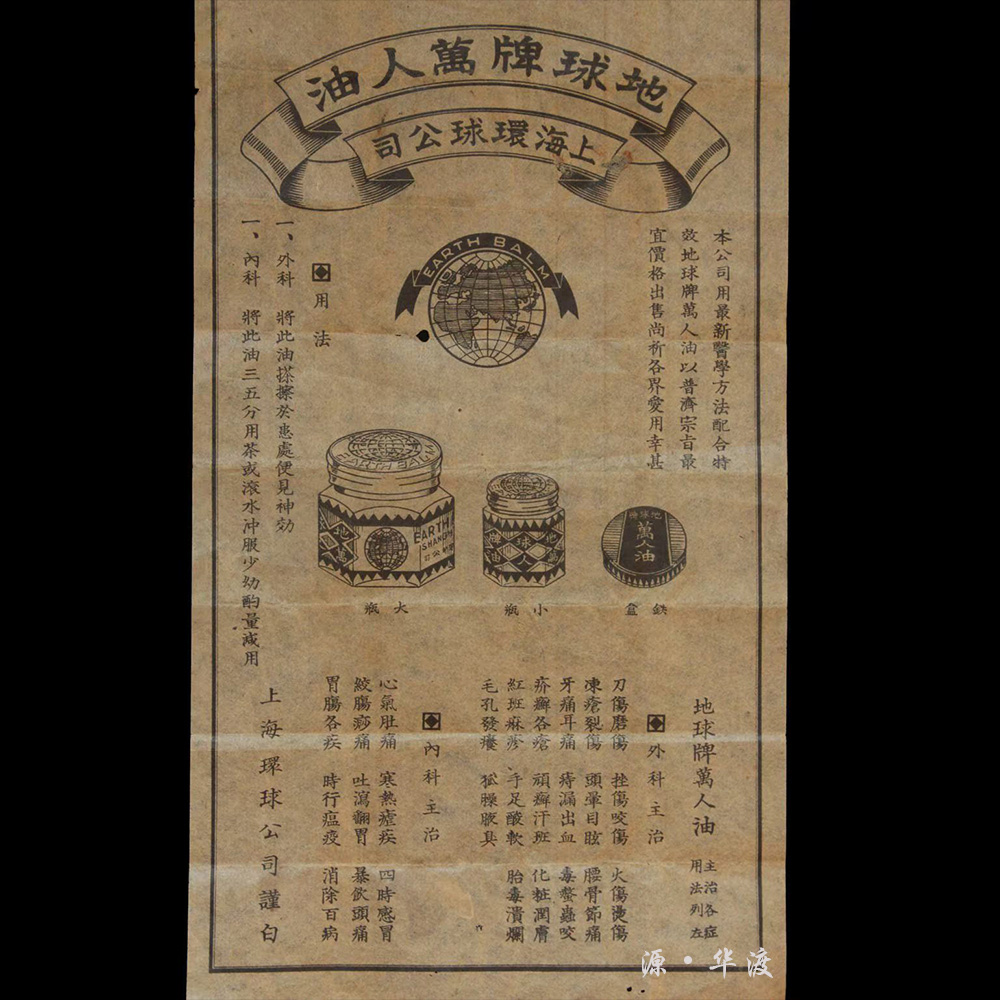 地球牌萬人油
上海環球公司
EARTH BALM
本公司用最新醫學方法配合特
效地球牌萬人油以普濟宗旨最
宜價格出售尚祈各界愛用幸甚
用法
一、外科 將此油搽擦於患處便見神効
一、內科 將此油三五分用茶或滾水沖服少幼酌量減用
EARTH BALM
地
萬
EARTH
SHANGH
大瓶
地
球
牌
萬
人
油
小瓶
地球牌
萬人油
鉄盒
地球牌萬人油
主治各症
用法列左
外科主治
刀傷磨傷 挫傷咬傷 火傷燙傷
凍瘡裂傷 頭暈目眩 腰骨節痛
牙痛耳痛 痔漏出血 毒螫蟲咬
疥癬各瘡 頑癬汗斑 化粧潤膚
紅斑麻疹 手足酸軟 胎毒潰爛
毛孔發癢 狐臊腋臭
內科主治
心氣肚痛 寒熱瘧疾 四時感冒
絞腸痧痛 吐瀉翻胃 暴飲頭痛
胃腸各疾 時行瘟疫 消除百病
上海環球公司謹白
源·华渡